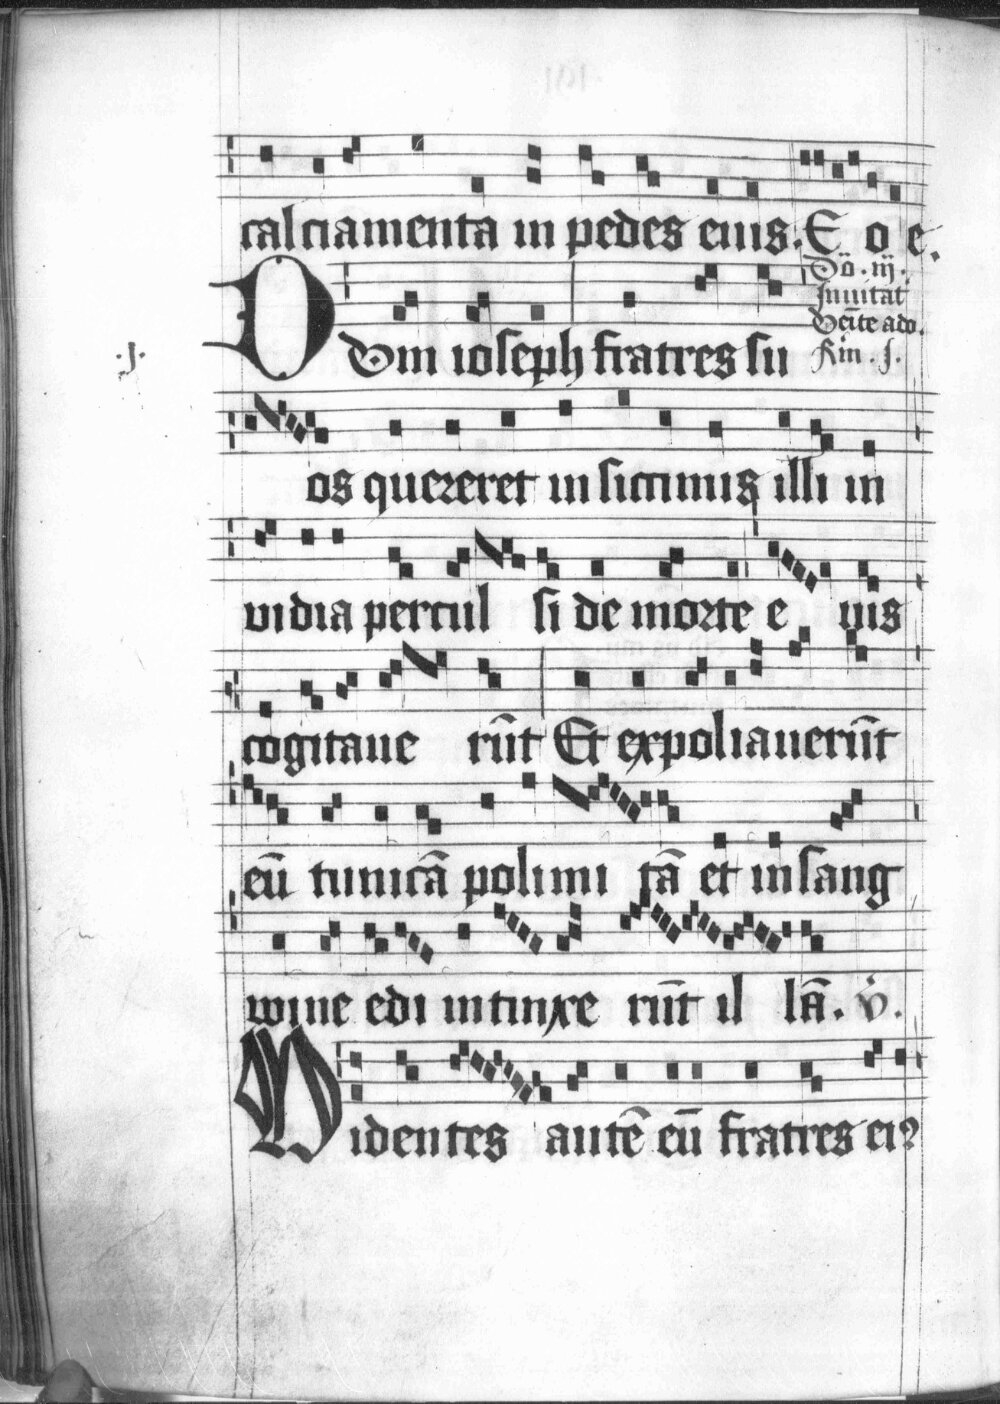 calciamenta in pedes eius. E o e.
Dō .iij.
Inuitat
Veīte ado.
Rm̄ .j.
.j.
Dum ioseph fratres su
os quereret in siccimis illi in
vidia percul si de morte e ius
cogitaue rūt Et expoliauerūt
eū tunicā polimi tā et in sang
wine edi intinxe rūt il lā. v̇.
Videntes autē eū fratres eiꝰ